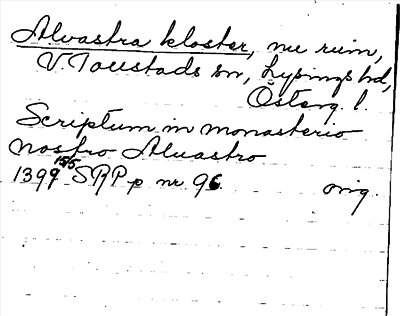 Alvastra kloster, nu ruin,
V. Tollstads sn, Lysings hd,
Österg. l.
Scriptum in monasterio
nostro Aluastro
1399 15/5 SRP p nr 96 orig